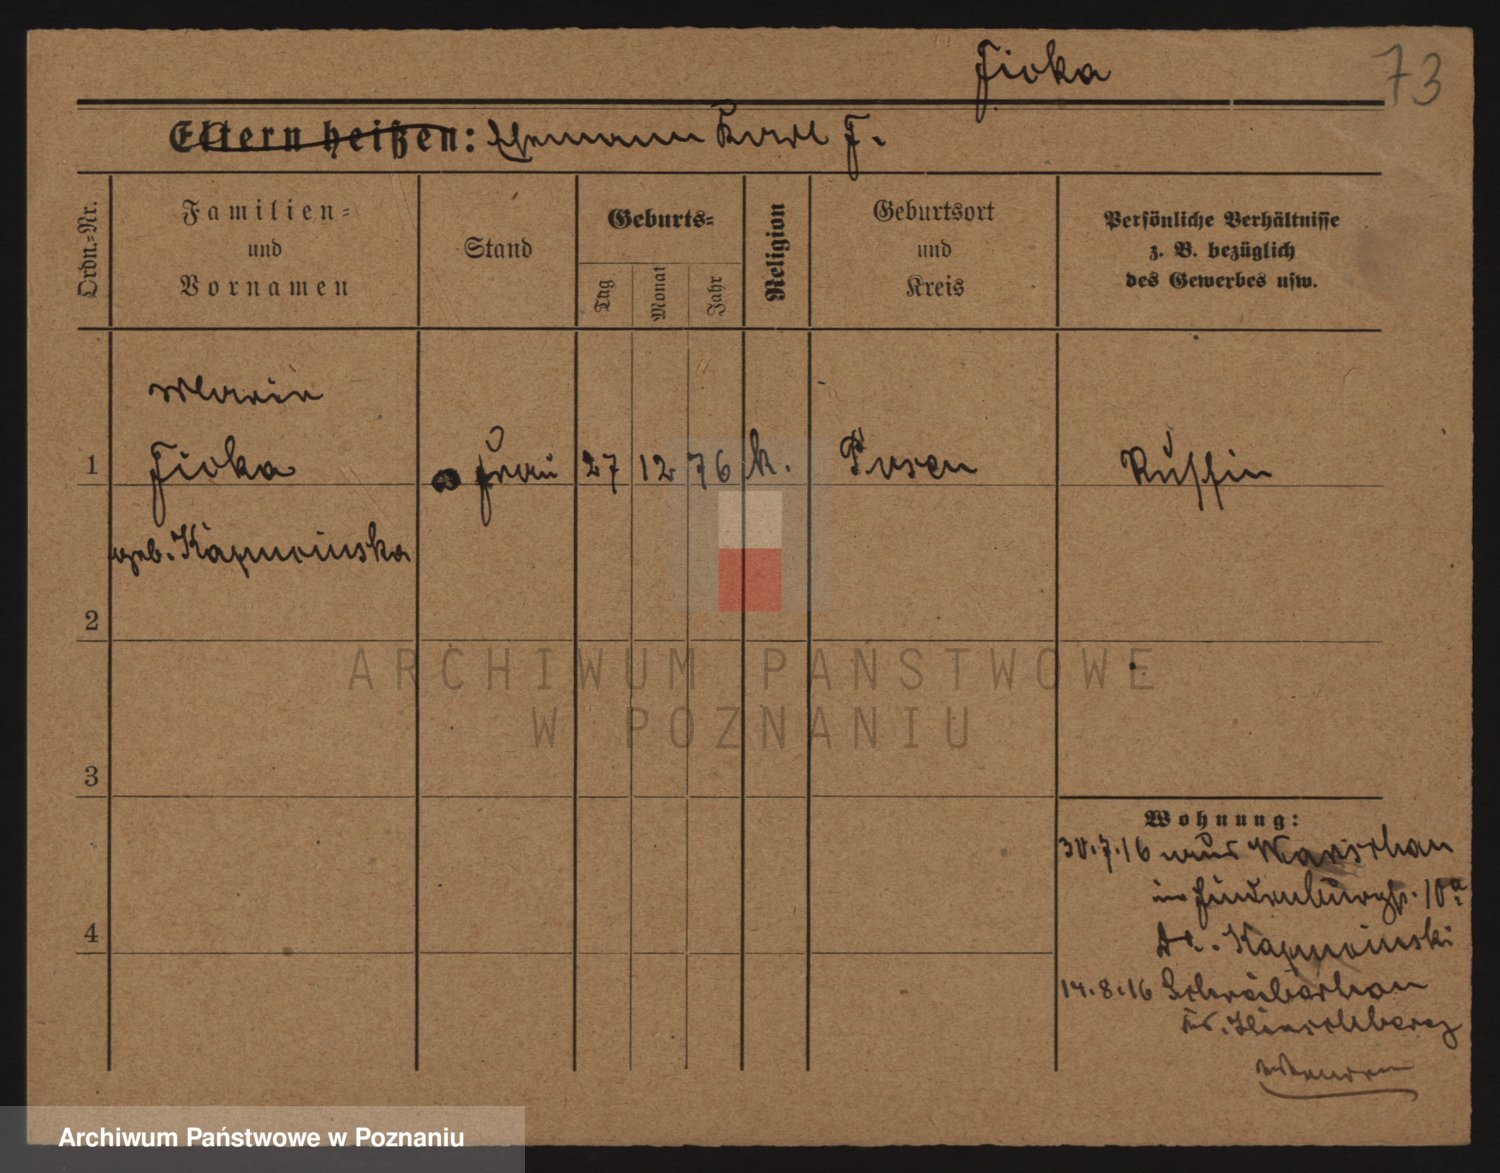 Fivka
73
Eltern heißen: Ehemann Karl F.
Ordn.-Nr.
Familien- und Vornamen
Stand
Geburts-
Tag
Monat
Jahr
Religion
Geburtsort und Kreis
Persönliche Verhältnisse z. B. bezüglich des Gewerbes usw.
Marie
1 Fivka Frau 27 12 76 k. Posen Russin
geb.
2
3
4
Wohnung:
30.7.16 aus Warschau
in Hindenburgstr. 10a
14.8.16 Schreiberhau
Kr. Hirschberg
ARCHIWUM PAŃSTWOWE
W POZNANIU
Archiwum Państwowe w Poznaniu